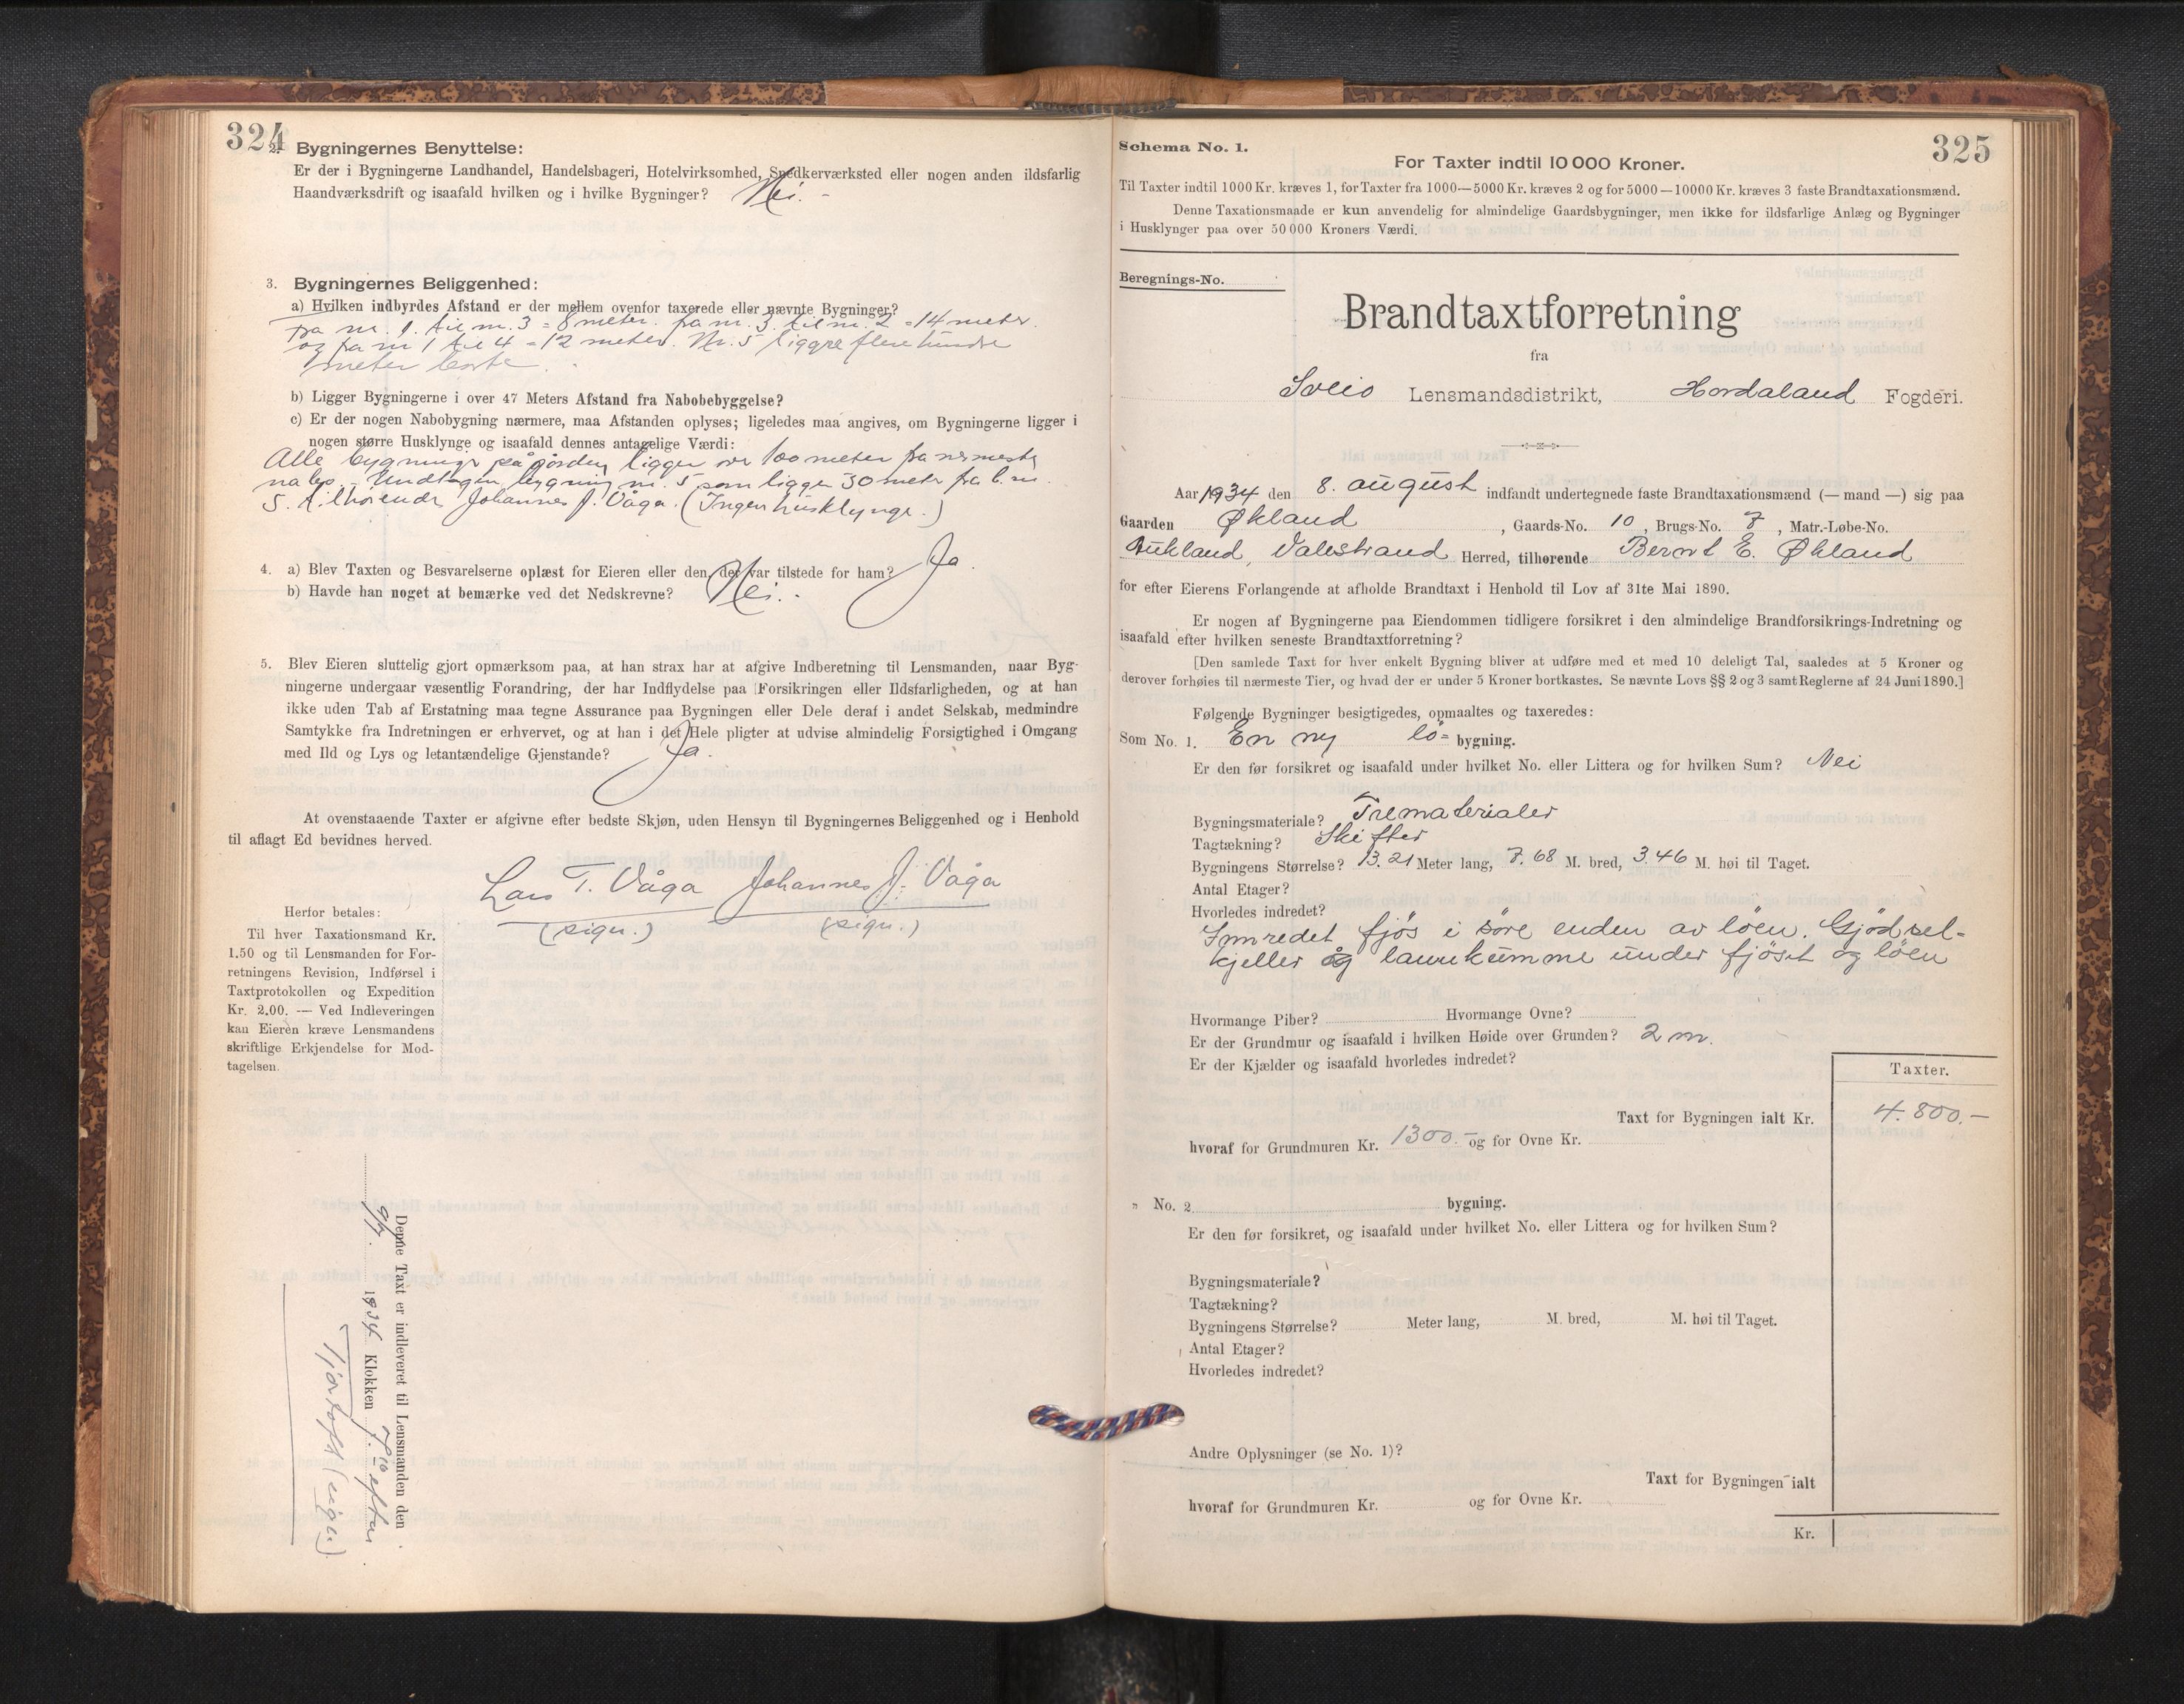 324
2. Bygningernes Benyttelse:
Er der i Bygningerne Landhandel, Handelsbageri, Hotelvirksomhed, Snedkerværksted eller nogen anden ildsfarlig
Haandværksdrift og isaafald hvilken og i hvilke Bygninger? Nei. -
3. Bygningernes Beliggenhed:
a) Hvilken indbyrdes Afstand er der mellem ovenfor taxerede eller nævnte Bygninger?
fra nr. 1. til nr. 3 = 8 meter. fra nr. 3. til nr. 2 = 14 meter.
og fra nr 1 til 4 = 12 meter. Nr. 5 ligger flere hundre
meter borte.
b) Ligger Bygningerne i over 47 Meters Afstand fra Nabobebyggelse?
c) Er der nogen Nabobygning nærmere, maa Afstanden oplyses; ligeledes maa angives, om Bygningerne ligger i
nogen større Husklynge og isaafald dennes antagelige Værdi:
Alle bygninger på gården ligger over 100 meter fra nermeste
nabo. - Undtagen bygning nr. 5 som ligger 30 meter fra b. nr.
5. tilhørende Johannes J. Våga. (Ingen husklynge.)
4. a) Blev Taxten og Besvarelserne oplæst for Eieren eller den, der var tilstede for ham? Ja.
b) Havde han noget at bemærke ved det Nedskrevne? Nei. -
5. Blev Eieren sluttelig gjort opmærksom paa, at han strax har at afgive Indberetning til Lensmanden, naar Byg-
ningerne undergaar væsentlig Forandring, der har Indflydelse paa Forsikringen eller Ildsfarligheden, og at han
ikke uden Tab af Erstatning maa tegne Assurance paa Bygningen eller Dele deraf i andet Selskab, medmindre
Samtykke fra Indretningen er erhvervet, og at han i det Hele pligter at udvise almindelig Forsigtighed i Omgang
med Ild og Lys og letantændelige Gjenstande? Ja.
At ovenstaaende Taxter er afgivne efter bedste Skjøn, uden Hensyn til Bygningernes Beliggenhed og i Henhold
til aflagt Ed bevidnes herved.
Lars T. Våga Johannes J. Våga
(sign.) (sign.)
Herfor betales:
Til hver Taxationsmand Kr.
1.50 og til Lensmanden for For-
retningens Revision, Indførsel i
Taxtprotokollen og Expedition
Kr. 2.00. — Ved Indleveringen
kan Eieren kræve Lensmandens
skriftlige Erkjendelse for Mod-
tagelsen.
Denne Taxt er indleveret til Lensmanden den
1934 Klokken 7 10 efter
(sign)
325
Schema No. 1.
For Taxter indtil 10 000 Kroner.
Til Taxter indtil 1000 Kr. kræves 1, for Taxter fra 1000—5000 Kr. kræves 2 og for 5000—10000 Kr. kræves 3 faste Brandtaxationsmænd.
Denne Taxationsmaade er kun anvendelig for almindelige Gaardsbygninger, men ikke for ildsfarlige Anlæg og Bygninger
i Husklynger paa over 50 000 Kroners Værdi.
Beregnings-No.
Brandtaxtforretning
fra
Sveio Lensmandsdistrikt, Hordaland Fogderi.
Aar 1934 den 8. august indfandt undertegnede faste Brandtaxationsmænd (— mand —) sig paa
Gaarden Økland, Gaards-No. 10, Brugs-No. 7, Matr.-Løbe-No.
Aukland, Valestrand Herred, tilhørende Bernt E. Økland
for efter Eierens Forlangende at afholde Brandtaxt i Henhold til Lov af 31te Mai 1890.
Er nogen af Bygningerne paa Eiendommen tidligere forsikret i den almindelige Brandforsikrings-Indretning og
isaafald efter hvilken seneste Brandtaxtforretning?
[Den samlede Taxt for hver enkelt Bygning bliver at udføre med et med 10 deleligt Tal, saaledes at 5 Kroner og
derover forhøies til nærmeste Tier, og hvad der er under 5 Kroner bortkastes. Se nævnte Lovs §§ 2 og 3 samt Reglerne af 24 Juni 1890.]
Følgende Bygninger besigtigedes, opmaaltes og taxeredes:
Som No. 1. En ny lö= bygning.
Er den før forsikret og isaafald under hvilket No. eller Littera og for hvilken Sum? Nei
Bygningsmateriale? Trematerialer
Tagtækning? Skifter
Bygningens Størrelse? 13.21 Meter lang, 7.68 M. bred, 3.46 M. høi til Taget.
Antal Etager?
Hvorledes indredet?
Innredet fjös i söre enden av löen. Gjödsel-
kjeller og laurkumme under fjöset og löen
Hvormange Piber? Hvormange Ovne?
Er der Grundmur og isaafald i hvilken Høide over Grunden? 2 m.
Er der Kjælder og isaafald hvorledes indredet?
Taxter.
Taxt for Bygningen ialt Kr. 4.800.—
hvoraf for Grundmuren Kr. 1300.- og for Ovne Kr.
" No. 2. bygning.
Er den før forsikret, og isaafald under hvilket No. eller Littera og for hvilken Sum?
Bygningsmateriale?
Tagtækning?
Bygningens Størrelse? Meter lang, M. bred, M. høi til Taget.
Antal Etager?
Hvorledes indredet?
Andre Oplysninger (se No. 1)?
Taxt for Bygningen ialt
hvoraf for Grundmuren Kr. og for Ovne Kr.
Kr.